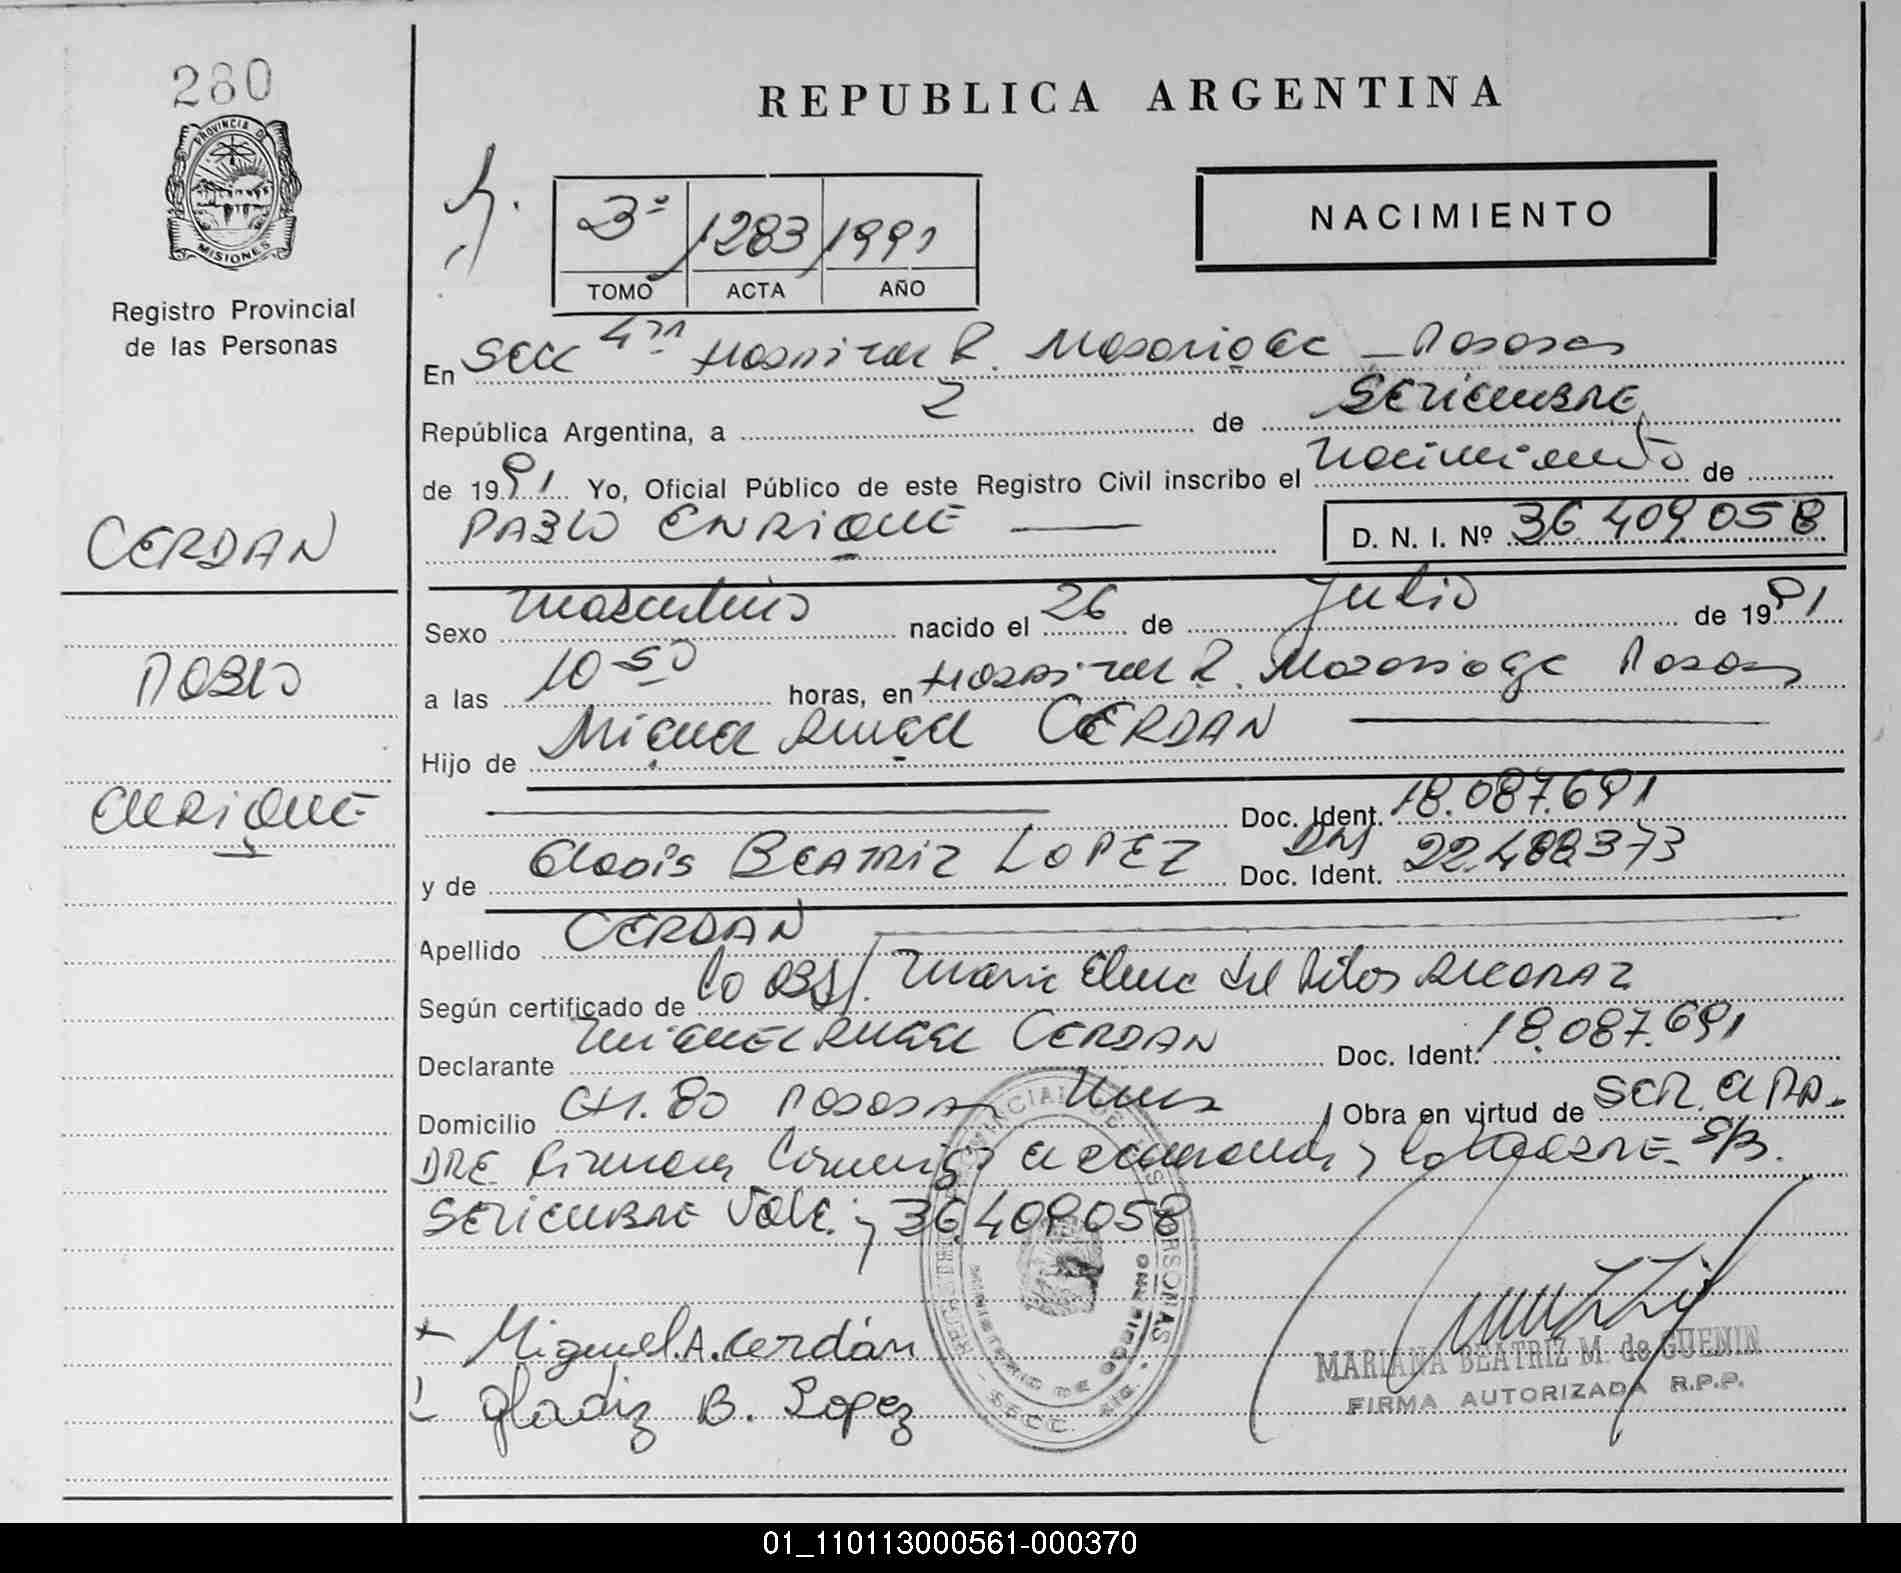 280
PROVINCIA DE
MISIONES
Registro Provincial
de las Personas
CERDAN
PABLO
ENRIQUE
REPUBLICA ARGENTINA
3º 1283 1991
TOMO ACTA AÑO
NACIMIENTO
En Secc 4ta Hospital R. Madariaga - Posadas
República Argentina, a 2 de SETIEMBRE
de 1991 Yo, Oficial Público de este Registro Civil inscribo el Nacimiento de
PABLO ENRIQUE
D. N. I. Nº 36.409.058
Sexo Masculino nacido el 26 de Julio de 1991
a las 10 50 horas, en Hospital R. Madariaga Posadas
Hijo de Miguel Angel CERDAN
Doc. Ident. 18.087.691
y de Gladis BEATRIZ LOPEZ DNI Doc. Ident. 22.488.373
Apellido CERDAN
Según certificado de la OBST. Maria Elena del Pilar ALCARAZ
Declarante MIGUEL ANGEL CERDAN Doc. Ident. 18.087.691
Domicilio CH. 80 POSADAS Obra en virtud de SER EL PA-
DRE Firman y la MADRE S/B.
SETIEMBRE Vale y 36.409.058
Miguel A. Cerdán
Gladiz B. Lopez
REGISTRO PROVINCIAL DE LAS PERSONAS
MINISTERIO DE GOBIERNO
MARIANA BEATRIZ M. de GUENIN
FIRMA AUTORIZADA R.P.P.
01_110113000561-000370